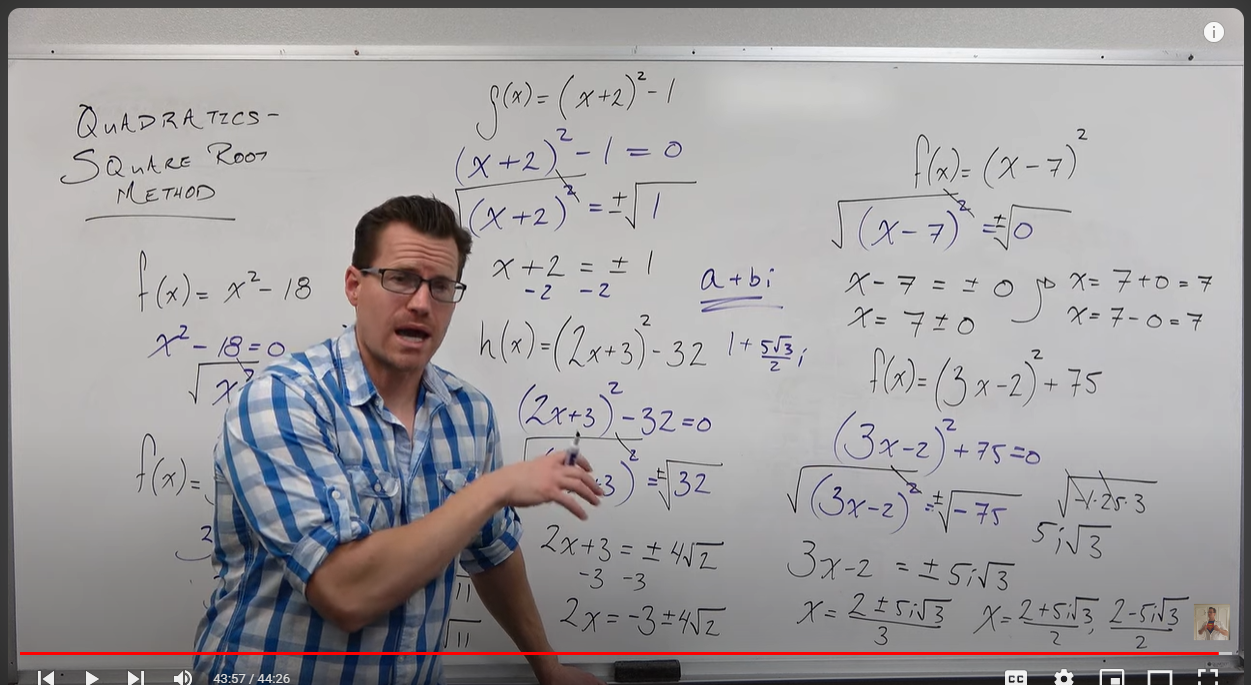 QUADRATICS -
SQUARE ROOT
METHOD
f(x) = x² - 18
x² - 18 = 0
√x²
f(x) =
3
√11
√11
g(x) = (x+2)² - 1
(x+2)² - 1 = 0
√(x+2)² = ±√1
x+2 = ± 1
-2 -2
a + bi
h(x) = (2x+3)² - 32
1 + 5√3/2 i
(2x+3)² - 32 = 0
+3)² = ±√32
2x+3 = ± 4√2
-3 -3
2x = -3 ± 4√2
f(x) = (x-7)²
√(x-7)² = ±√0
x - 7 = ± 0
x = 7 + 0 = 7
x = 7 ± 0
x = 7 - 0 = 7
f(x) = (3x-2)² + 75
(3x-2)² + 75 = 0
√(3x-2)² = ±√-75
√-1·25·3
5i√3
3x-2 = ± 5i√3
x = 2 ± 5i√3/3
x = 2+5i√3/2, 2-5i√3/2
43:57 / 44:26
CC